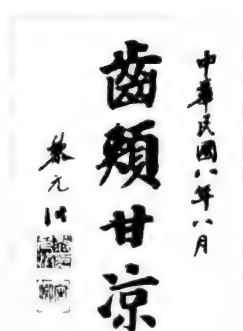 中華民國八年八月
齒頰甘凉
黎元洪